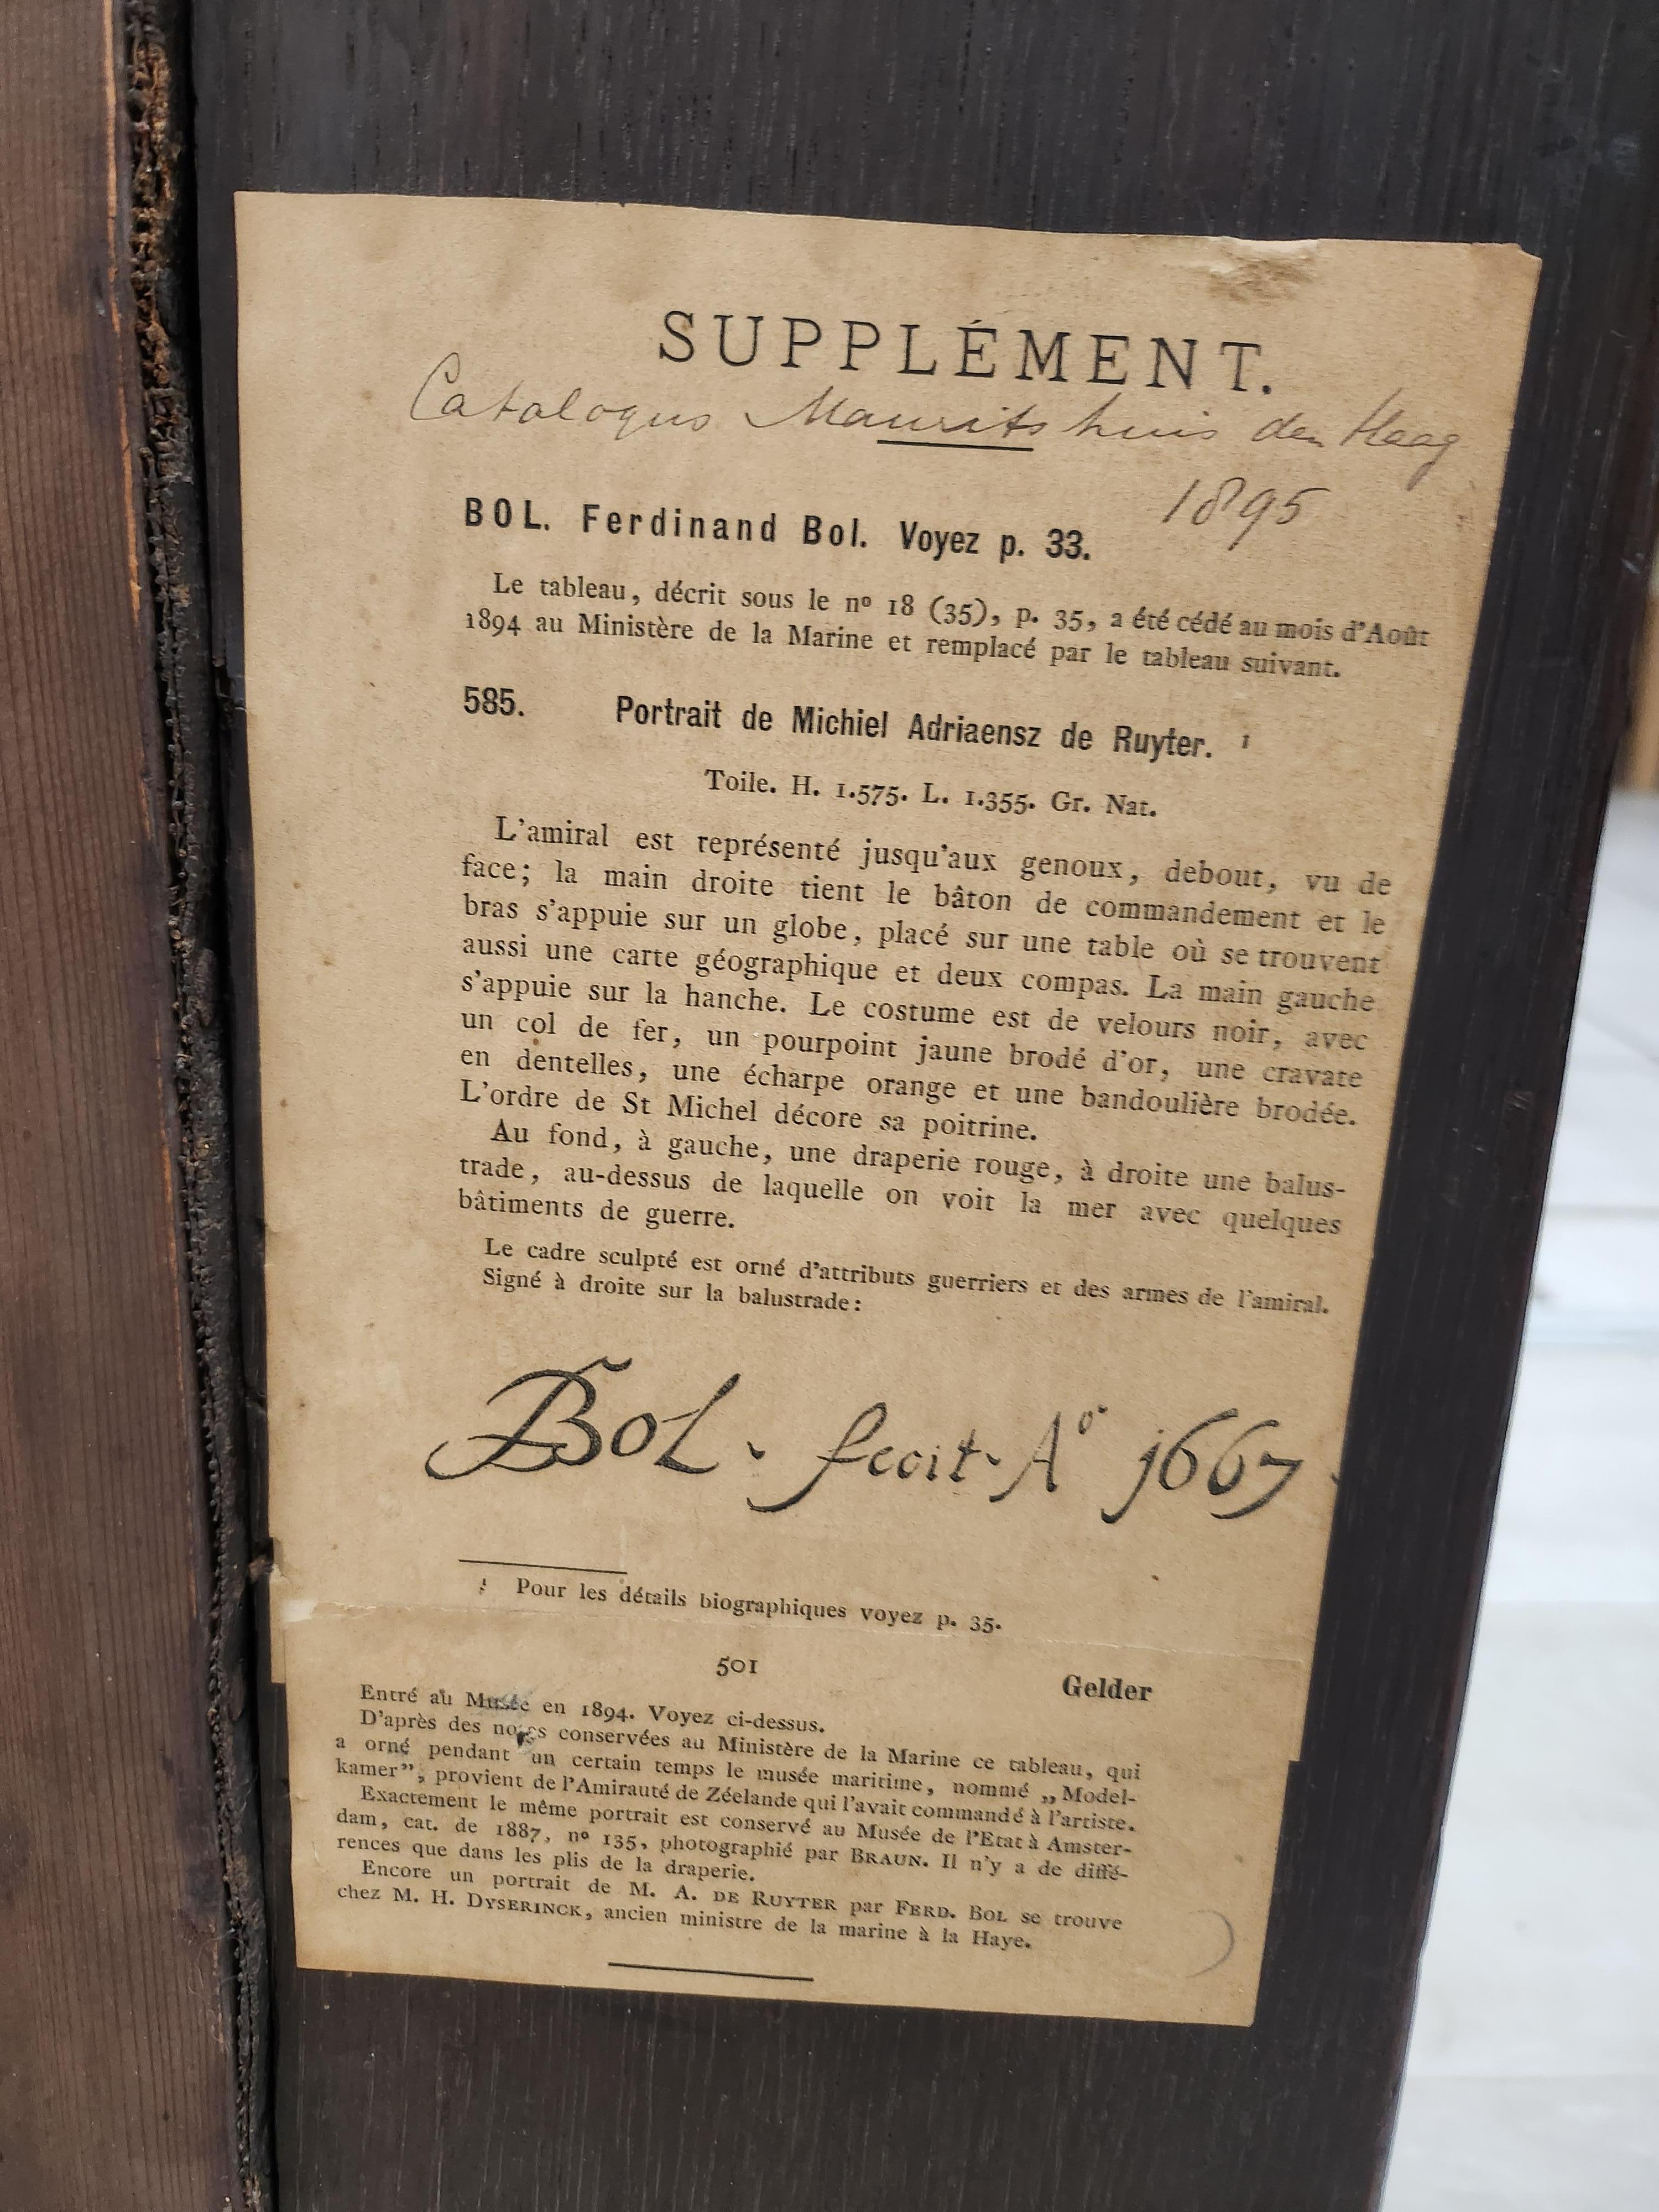 SUPPLÉMENT.
Catalogus Mauritshuis den Haag
1895
BOL. Ferdinand Bol. Voyez p. 33.
Le tableau, décrit sous le nº 18 (35), p. 35, a été cédé au mois d'Août
1894 au Ministère de la Marine et remplacé par le tableau suivant.
585. Portrait de Michiel Adriaensz de Ruyter. ¹
Toile. H. 1.575. L. 1.355. Gr. Nat.
L'amiral est représenté jusqu'aux genoux, debout, vu de
face; la main droite tient le bâton de commandement et le
bras s'appuie sur un globe, placé sur une table où se trouvent
aussi une carte géographique et deux compas. La main gauche
s'appuie sur la hanche. Le costume est de velours noir, avec
un col de fer, un pourpoint jaune brodé d'or, une cravate
en dentelles, une écharpe orange et une bandoulière brodée.
L'ordre de St Michel décore sa poitrine.
Au fond, à gauche, une draperie rouge, à droite une balus-
trade, au-dessus de laquelle on voit la mer avec quelques
bâtiments de guerre.
Le cadre sculpté est orné d'attributs guerriers et des armes de l'amiral.
Signé à droite sur la balustrade:
BOL · fecit · Aº 1667 ·
¹ Pour les détails biographiques voyez p. 35.
501 Gelder
Entré au Musée en 1894. Voyez ci-dessus.
D'après des notes conservées au Ministère de la Marine ce tableau, qui
a orné pendant un certain temps le musée maritime, nommé „Model-
kamer”, provient de l'Amirauté de Zéelande qui l'avait commandé à l'artiste.
Exactement le même portrait est conservé au Musée de l'Etat à Amster-
dam, cat. de 1887, nº 135, photographié par BRAUN. Il n'y a de diffé-
rences que dans les plis de la draperie.
Encore un portrait de M. A. DE RUYTER par FERD. BOL se trouve
chez M. H. DYSERINCK, ancien ministre de la marine à la Haye.